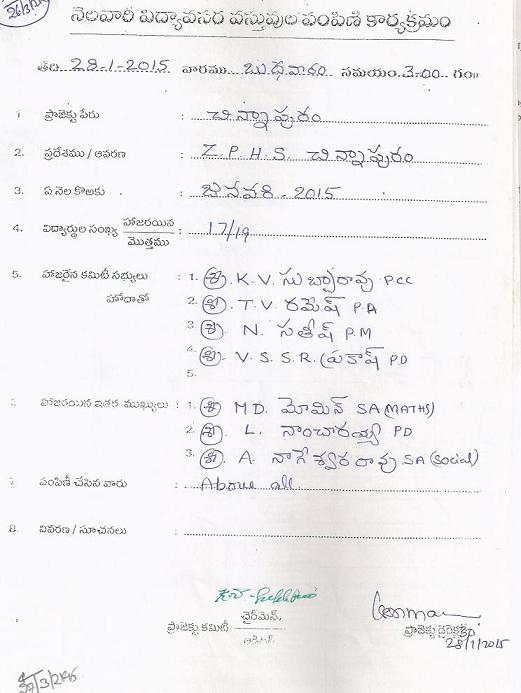 నెలవారీ విద్యావసర వస్తువుల పంపిణి కార్యక్రమం
తేది 28-1-2015 వారము బుధవారం సమయం 3-00 గం॥
1 ప్రాజెక్టు పేరు : చిన్నాపురం
2. ప్రదేశము / ఆవరణ : Z.P.H.S. చిన్నాపురం
3. ఏ నెల కొఱకు : జనవరి - 2015
4. విద్యార్థుల సంఖ్య హాజరయిన / మొత్తము : 17/19
5. హాజరైన కమిటీ సభ్యులు : 1. శ్రీ. K.V. సుబ్బారావు PCC
హోదాతో 2. శ్రీ. T.V రమేష్ P.A
3. శ్రీ N. సతీష్ P.M
4. శ్రీ. V.S.S.R. ప్రకాష్ PD
5.
హాజరయిన ఇతర ముఖ్యులు : 1. శ్రీ MD. మోమిన్ SA (MATHS)
2. శ్రీ. L. నాంచారయ్య PD
3. శ్రీ. A. నాగేశ్వరరావు SA (Social)
7 పంపిణీ చేసిన వారు : Above all
8. వివరణ / సూచనలు :
ప్రాజెక్టు కమిటీ ఛైర్మెన్
ప్రాజెక్టు డైరెక్టరు
28/1/2015